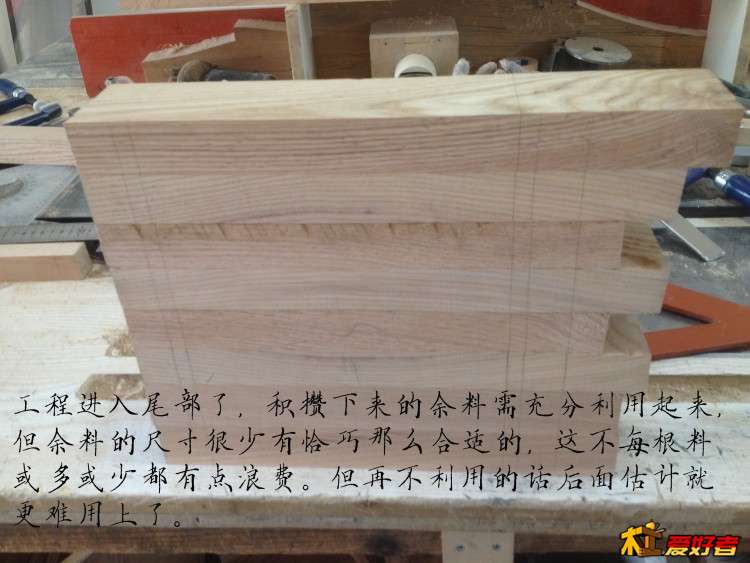 工程进入尾部了，积攒下来的余料需充分利用起来，
但余料的尺寸很少有恰巧那么合适的，这不每根料
或多或少都有点浪费。但再不利用的话后面估计就
更难用上了。
木工爱好者